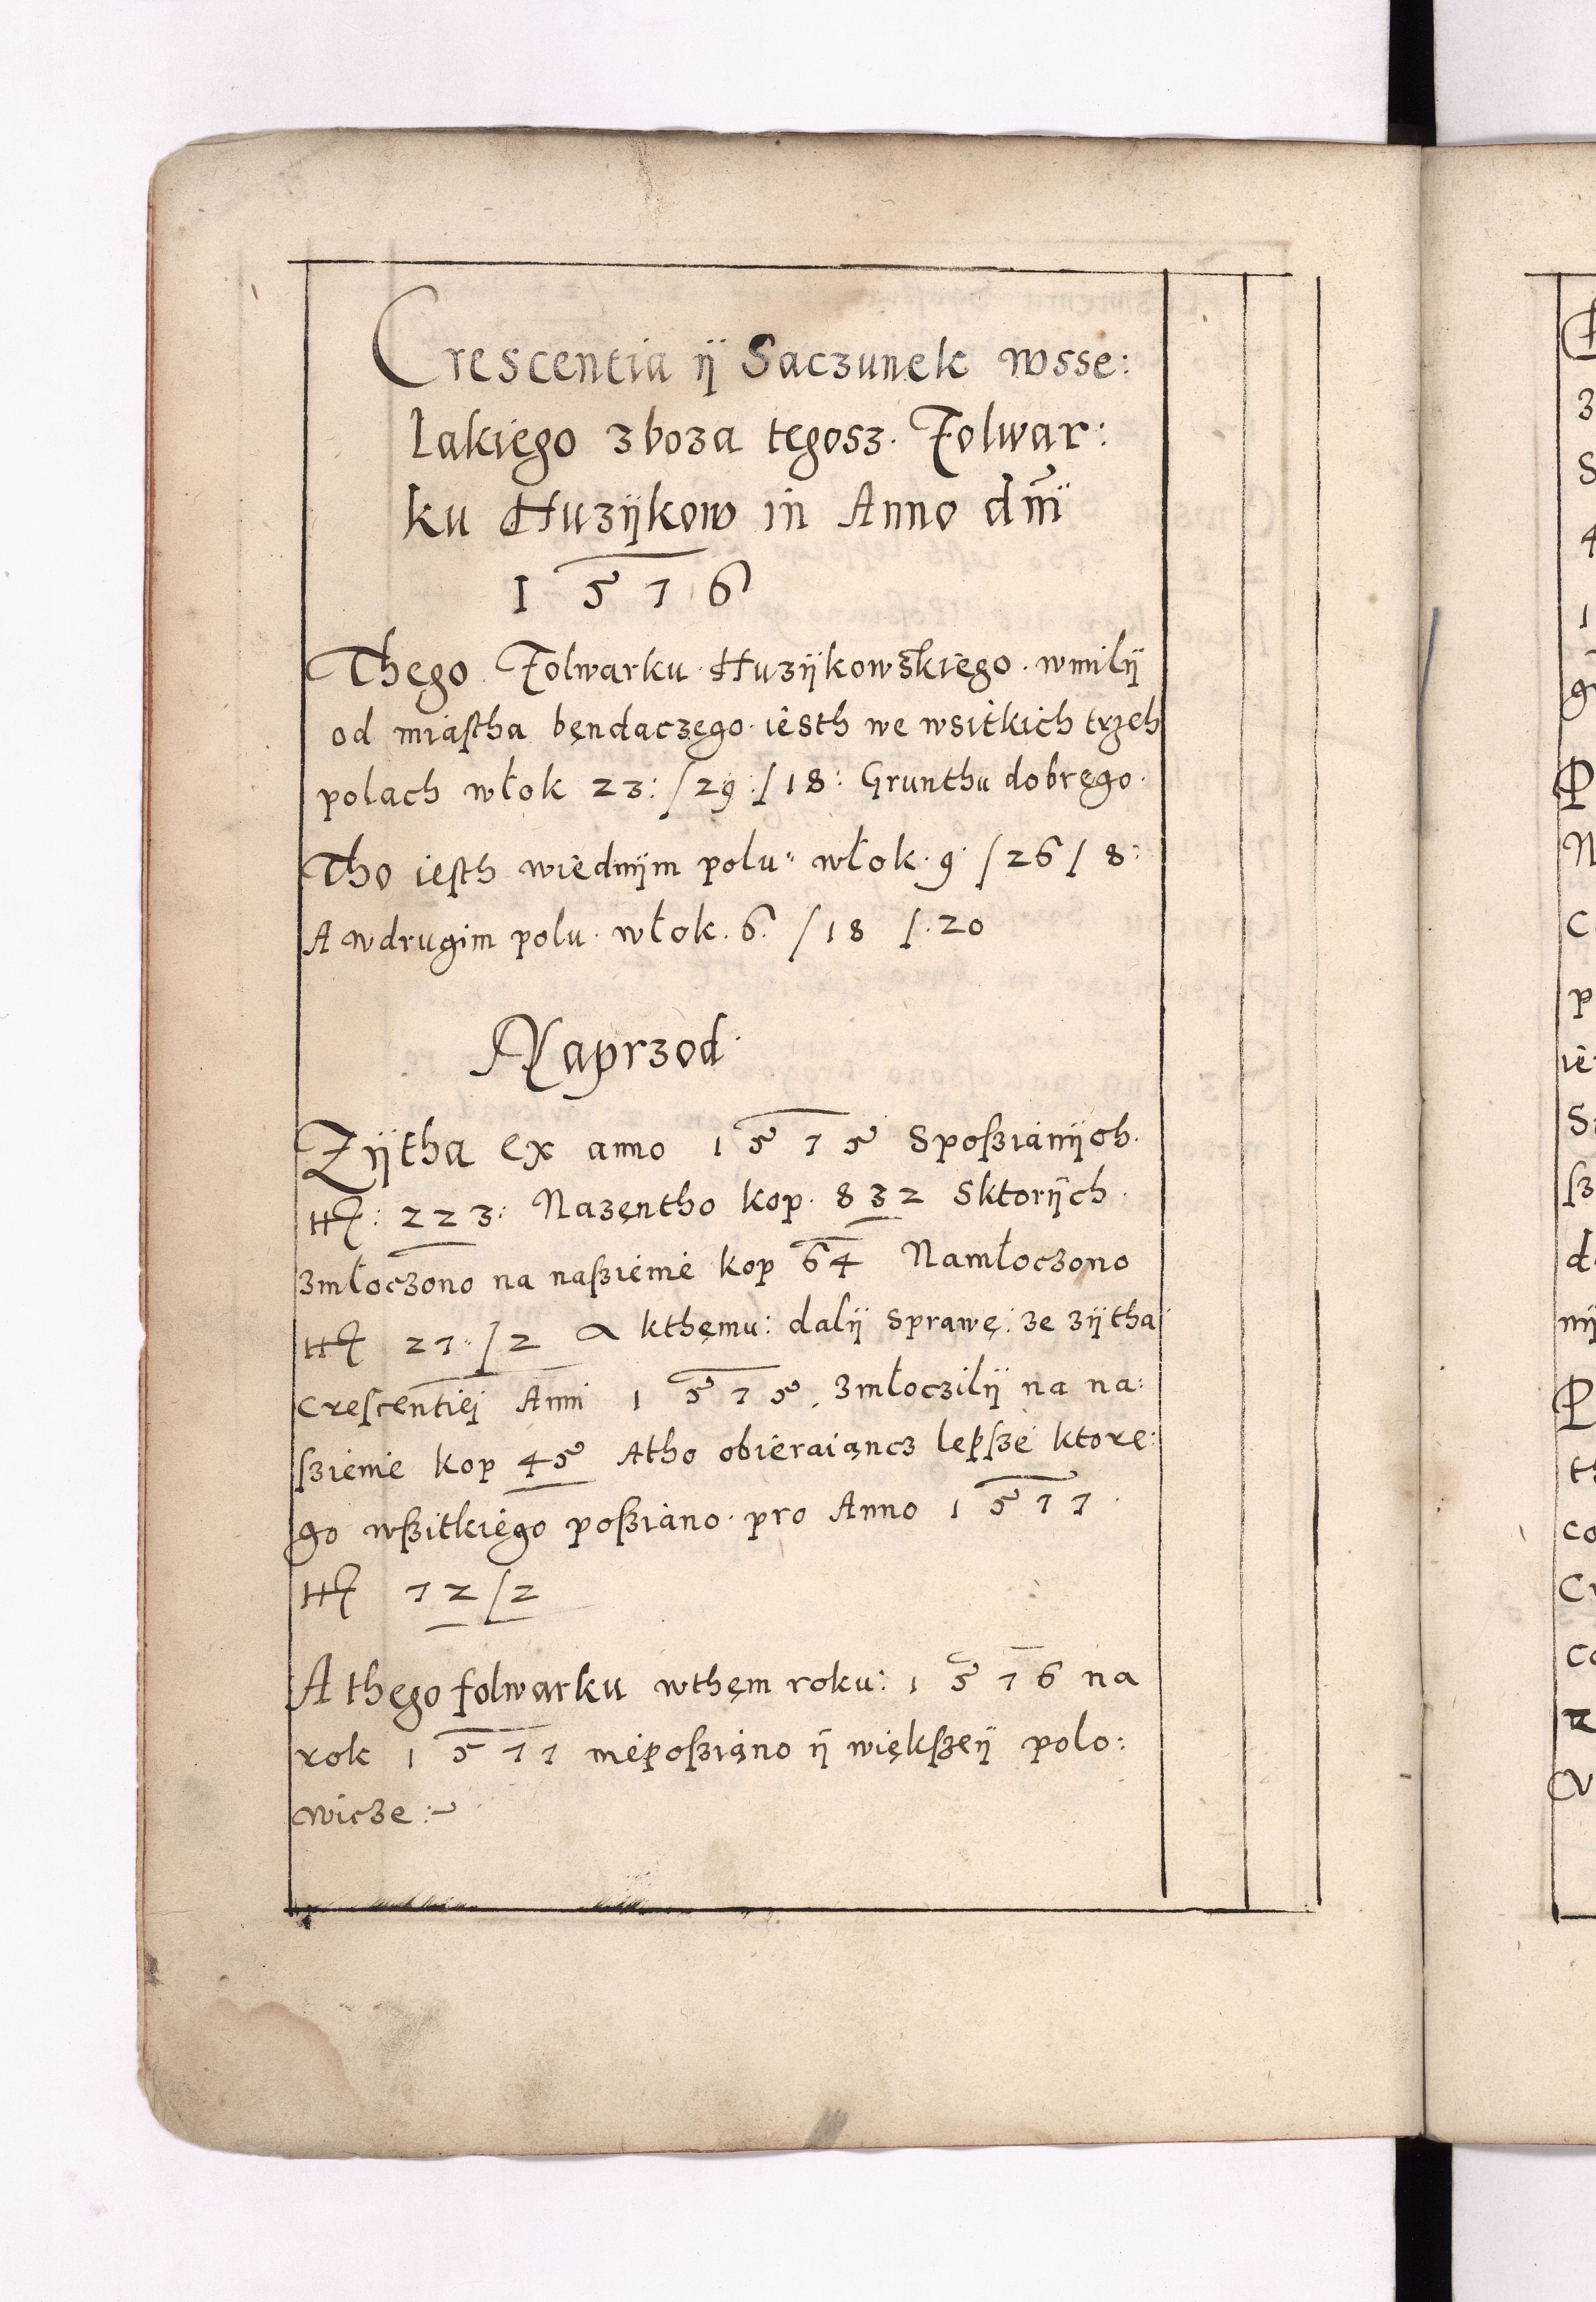 Crescentia ij Saczunek wsse:
lakiego zboza tegosz. Folwar:
ku Huzijkow in Anno dm̃i
1576
Thego Folwarku Huzijkowskiego. wmilij
od miastha bęndaczęgo. iesth we wsitkich trzeh
polach włok 23: / 29. / 18: Grunthu dobręgo.
Tho iesth wiednijm polu: włok. 9. / 26 / 8:
A wdrugim polu. włok. 6. / 18 /. 20
Naprzod
Zijtha Ex anno 1575 Sposzianijch.
: 223: Nazęntho kop. 832 Sktorijch.
zmłoczono na naszienie kop 64 Namłoczono
27. / 2 A kthęmu: dalij Sprawę: ze zijtha
Crescentiei Anni 1575. zmłoczilij na na:
szienie kop 45 Atho obieraiąncz lepsze ktore:
go wszitkiego posziano. pro Anno 1577.
72 / 2
A thego folwarku wthęm roku: 1576 na
rok 1577 nieposziano ij większeij polo:
wicze: